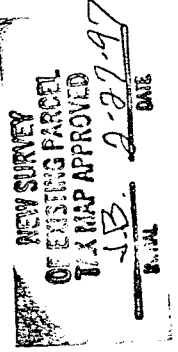 NEW SURVEY
OF EXISTING PARCEL
TAX MAP APPROVED
J.B. 2-27-97
INITIAL DATE